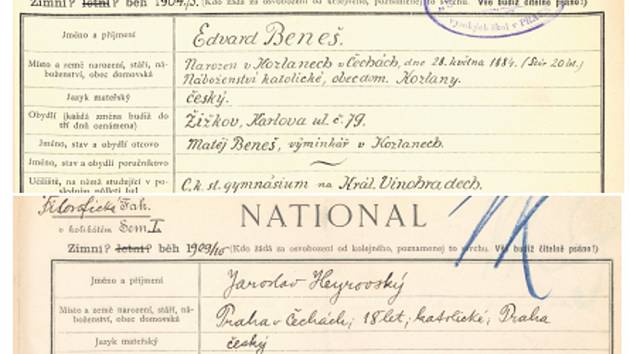 Zimní? letní? běh 1904/5. (Kdo žádá za osvobození od kolejného, poznamenej to svrchu. Vše budiž čitelně psáno!)
vysokých škol v PRAZE
Jméno a příjmení Edvard Beneš.
Místo a země narození, stáří, ná- Narozen v Kozlanech v Čechách, dne 28. května 1884. (Stár 20 let.)
boženství, obec domovská Náboženství katolické, obec dom. Kozlany.
Jazyk mateřský český.
Obydlí (každá změna budiž do
tří dnů oznámena) Žižkov, Karlova ul. č. 79.
Jméno, stav a obydlí otcovo Matěj Beneš, výminkář v Kozlanech.
Jméno, stav a obydlí poručníkovo
Učiliště, na němž studující v po- C. k. st. gymnásium na Král. Vinohradech.
Filosofické Fak.
v kolikátém Sem I.
NATIONAL
Zimní? letní? běh 1909/10 (Kdo žádá za osvobození od kolejného, poznamenej to svrchu. Vše budiž čitelně psáno!)
Jméno a příjmení Jaroslav Heyrovský
Místo a země narození, stáří, ná-
boženství, obec domovská Praha v Čechách; 18 let; katolické; Praha
Jazyk mateřský český